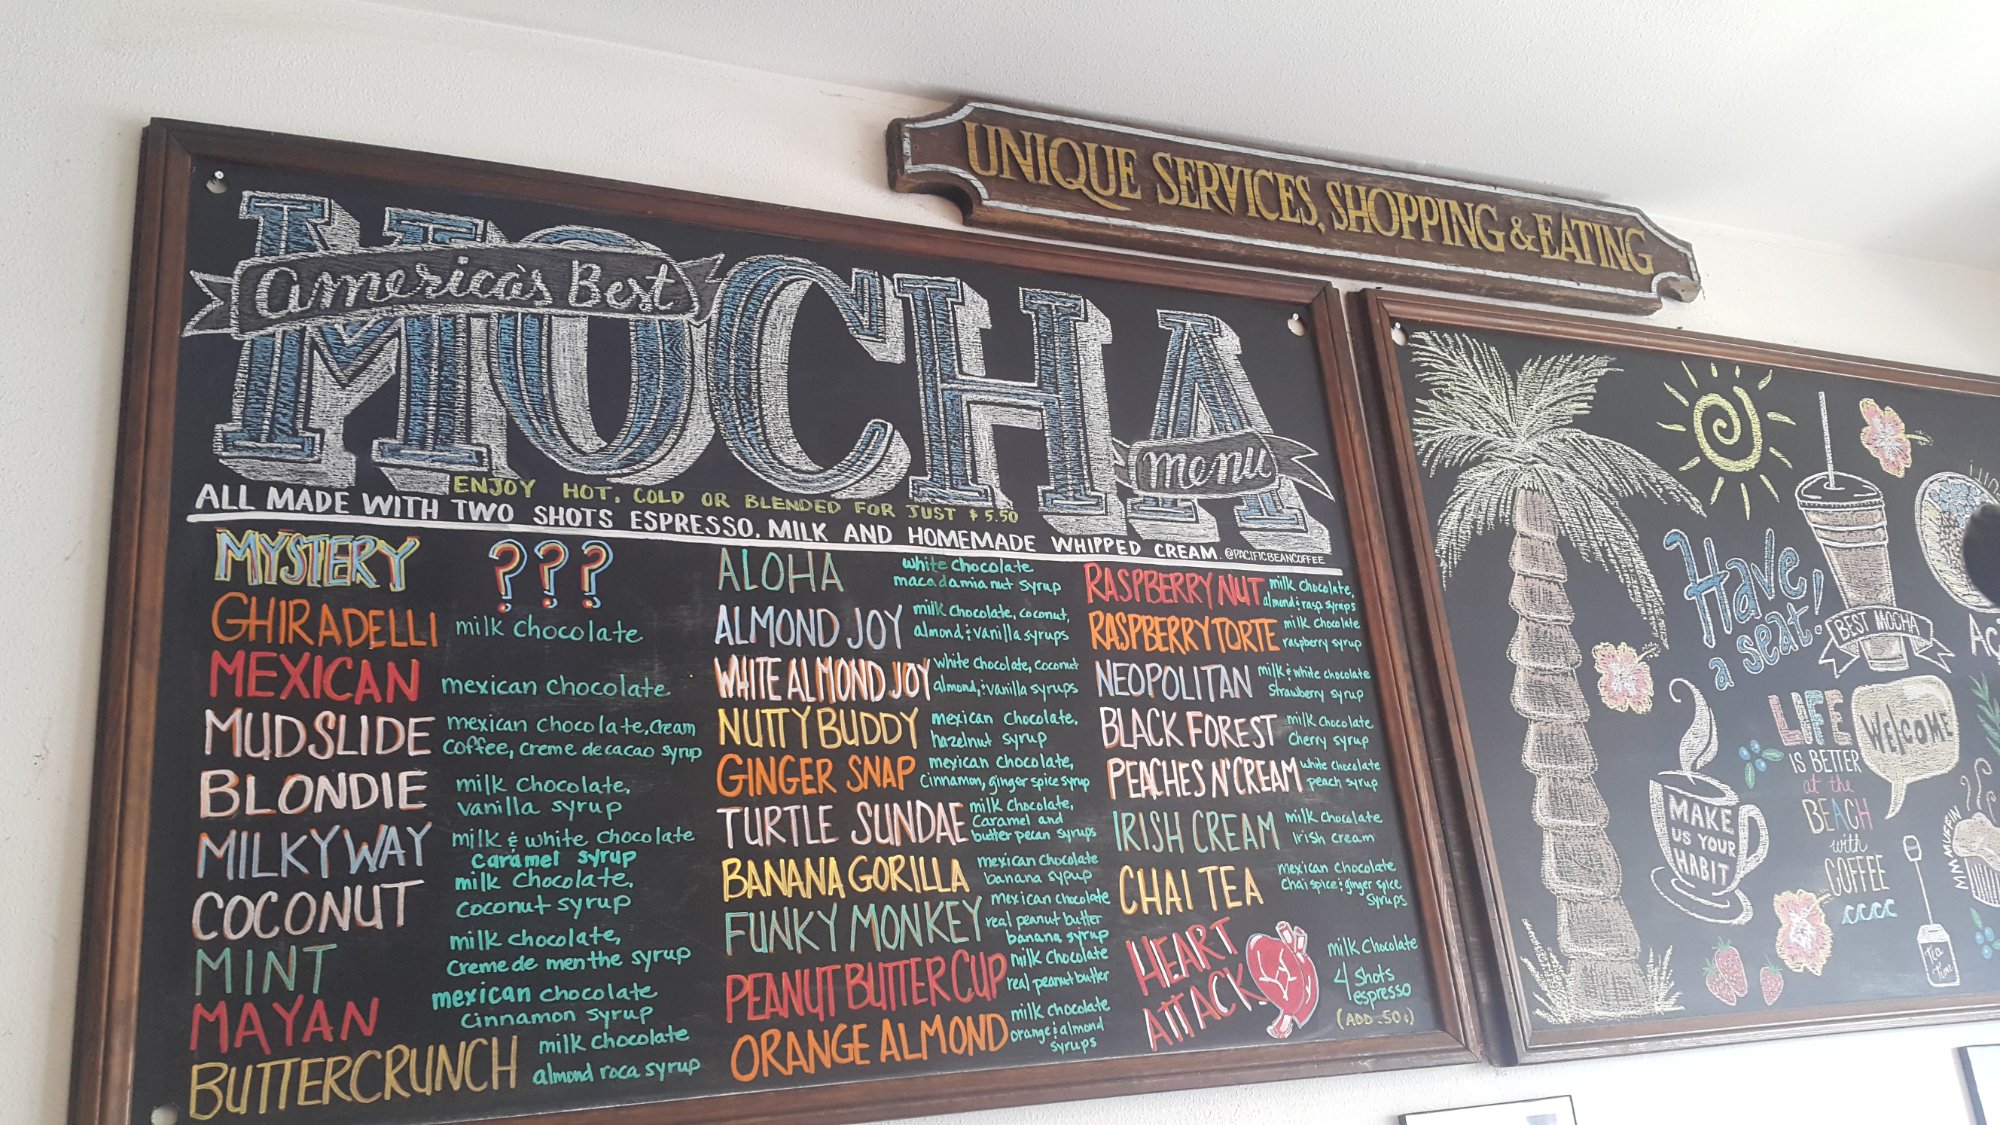 UNIQUE SERVICES, SHOPPING & EATING
america's Best
MOCHA
menu
ENJOY HOT, COLD OR BLENDED FOR JUST $5.50
ALL MADE WITH TWO SHOTS ESPRESSO, MILK AND HOMEMADE WHIPPED CREAM. @PACIFICBEANCOFFEE
MYSTERY ???
GHIRADELLI milk chocolate
MEXICAN mexican chocolate
MUDSLIDE mexican chocolate, cream
coffee, creme de cacao syrup
BLONDIE milk chocolate,
vanilla syrup
MILKYWAY milk & white chocolate
caramel syrup
COCONUT milk chocolate,
coconut syrup
MINT milk chocolate,
creme de menthe syrup
MAYAN mexican chocolate
cinnamon syrup
BUTTERCRUNCH milk chocolate
almond roca syrup
ALOHA white chocolate
macadamia nut syrup
ALMOND JOY milk chocolate, coconut,
almond, & vanilla syrups
WHITE ALMOND JOY white chocolate, coconut
almond, & vanilla syrups
NUTTY BUDDY mexican chocolate,
hazelnut syrup
GINGER SNAP mexican chocolate,
cinnamon, ginger spice syrup
TURTLE SUNDAE milk chocolate,
caramel and
butter pecan syrups
BANANA GORILLA mexican chocolate
banana syrup
FUNKY MONKEY mexican chocolate
real peanut butter
banana syrup
PEANUT BUTTER CUP milk chocolate
real peanut butter
ORANGE ALMOND milk chocolate
orange & almond
syrups
RASPBERRY NUT milk chocolate,
almond & rasp syrups
RASPBERRY TORTE milk chocolate
raspberry syrup
NEOPOLITAN milk & white chocolate
strawberry syrup
BLACK FOREST milk chocolate
cherry syrup
PEACHES N' CREAM white chocolate
peach syrup
IRISH CREAM milk chocolate
irish cream
CHAI TEA mexican chocolate
chai spice & ginger spice
syrups
HEART
ATTACK
milk chocolate
4 shots
espresso
(ADD .50¢)
Have
a seat!
BEST MOCHA
LIFE
IS BETTER
at the
BEACH
with
COFFEE
WELCOME
MAKE
US YOUR
HABIT
MMMUFFIN
Tea
Time